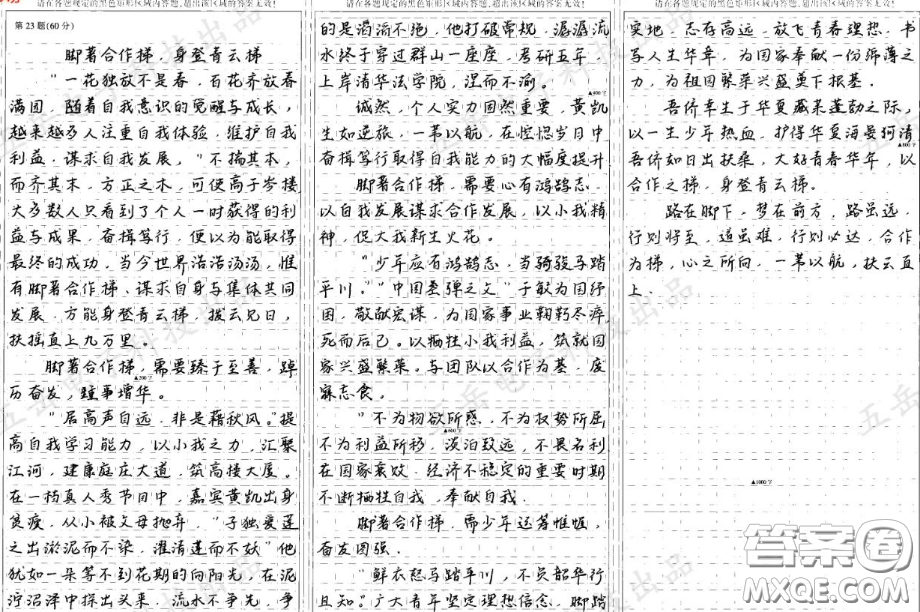 请在各题规定的黑色矩形区域内答题,超出该区域的答案无效!
第23题(60分)
脚著合作梯,身登青云梯
"一花独放不是春,百花齐放春
满园",随着自我意识的觉醒与成长,
越来越多人注重自我体验,维护自我
利益,谋求自我发展,"不揣其本,
而齐其末,方寸之木,可使高于岑楼
大多数人只看到了个人一时获得的利
益与成果,奋楫笃行,便以为能取得
最终的成功,当今世界浩浩汤汤,惟
有脚著合作梯,谋求自身与集体共同
发展,方能身登青云梯,拨云见日,
扶摇直上九万里。
脚著合作梯,需要臻于至善,踔
厉奋发,踵事增华。
"居高声自远,非是藉秋风。"提
高自我学习能力,以小我之力,汇聚
江河,建康庭庄大道,筑高楼大厦。
在一档真人秀节目中,嘉宾黄凯出身
贫瘦,从小被父母抛弃,"予独爱莲
之出淤泥而不染,濯清涟而不妖"他
犹如一朵等不到花期的向阳光,在泥
泞沼泽中探出头来,流水不争先,争
请在各题规定的黑色矩形区域内答题,超出该区域的答案无效!
的是滔滔不绝,他打破常规,潺潺流
水终于穿过群山一座座,考研五年,
上岸清华法学院,涅而不渝。
▲400字
诚然,个人实力固然重要,黄凯
生如逆旅,一苇以航,在惶惶当日中
奋楫笃行取得自我能力的大幅度提升
脚著合作梯,需要心有鸿鹄志,
以自我发展谋求合作发展,以小我精
神,促大我新生火花。
"少年应有鸿鹄志,当骑骏马踏
平川。"中国氢弹之父"于敏为国纾
困,敬献宏谋,为国家事业鞠躬尽瘁
死而后已。以牺牲小我利益,筑就国
家兴盛繁荣。与团队以合作为基,废
寐忘食。
"不为物欲所惑,不为权势所屈
▲600字
不为利益所移,淡泊致远,不畏名利
在国家衰败,经济不稳定的重要时期
不断牺牲自我,奉献自我.
脚著合作梯,需少年运筹帷幄,
奋发图强.
"鲜衣怒马踏平川,不负韶华行
且知。"广大青年坚定理想信念,脚踏
请在各题规定的黑色矩形区域内答题,超出该区域的答案无效!
实地,志存高远,放飞青春理想,书
写人生华章,为国家奉献一份绵薄之
力,为祖国繁荣兴盛奠下根基.
吾侪幸生于华夏盛荣蓬勃之际,
以一生少年热血,护得华夏海晏河清
▲800字
吾侪如日出扶桑,大好青春华年,以
合作之梯,身登青云梯.
路在脚下,梦在前方,路虽远,
行则将至,道虽难,行则必达,合作
为梯,心之所向,一苇以航,扶云直
上.
▲1000字
答案圈
MXQE.COM